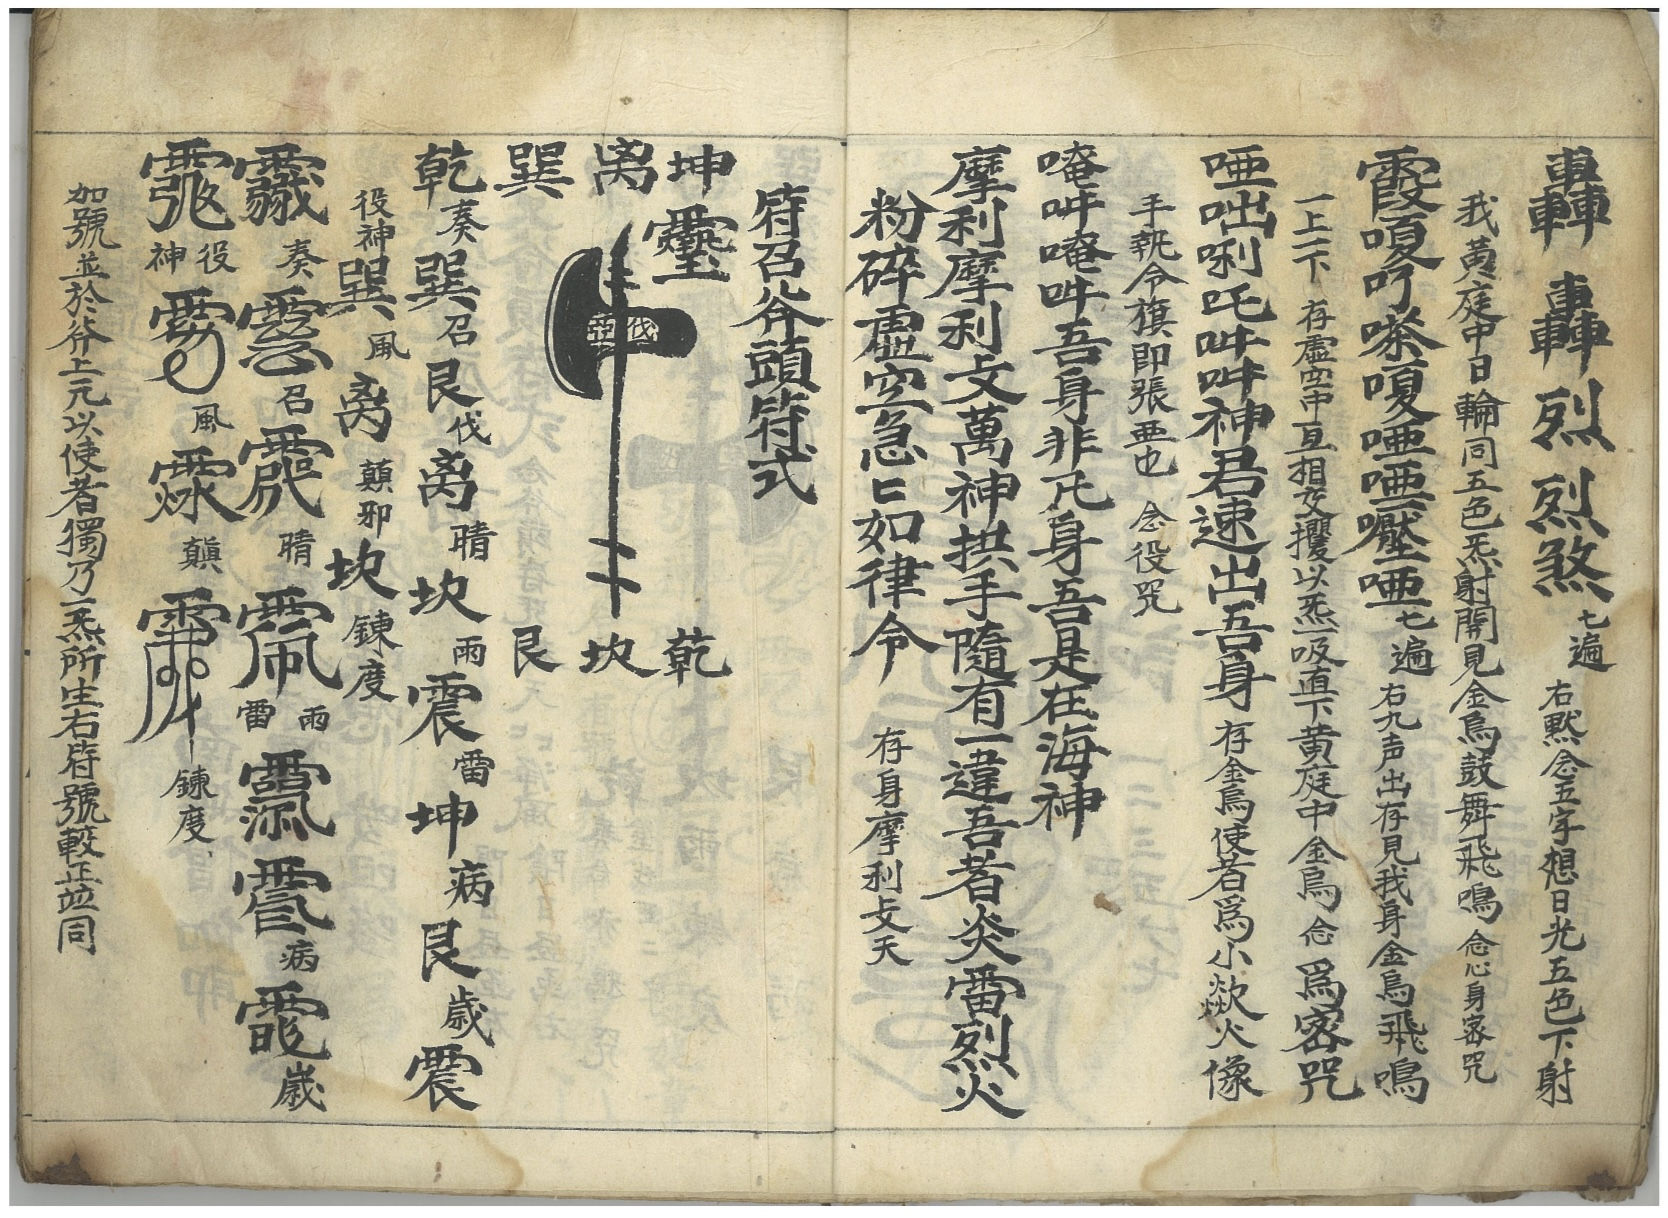 轟轟烈烈煞七遍右默念五字想日光五色下射
我黃庭中日輪同五色炁射開見金烏鼓舞飛鳴念心身密咒
霞嗄吖嗏嗄唖唖嚦唖七遍右九声出存見我身金烏飛鳴
一上一下存虛空中互相交攫以炁一吸直下黃庭中金烏念爲密咒
唖咄唎吒吽吽神君速出吾身存金烏使者爲小歘火像
手執令旗即張亜也念役咒
唵吽唵吽吾身非凡身吾是在海神
摩利摩利攴萬神拱手隨有一違吾者炎雷烈火
粉碎虛空急匕如律令存身摩利攴天
符召斧頭符式
坤乾
离坎
巽艮
亞伐
乾奏巽召艮伐离晴坎雨震雷坤病艮歳震
役神巽風离顛邪坎鍊度
奏召晴雨雷病歳
役神風顛鍊度
加號並於斧上元以使者獨乃一炁所生右符號較正並同